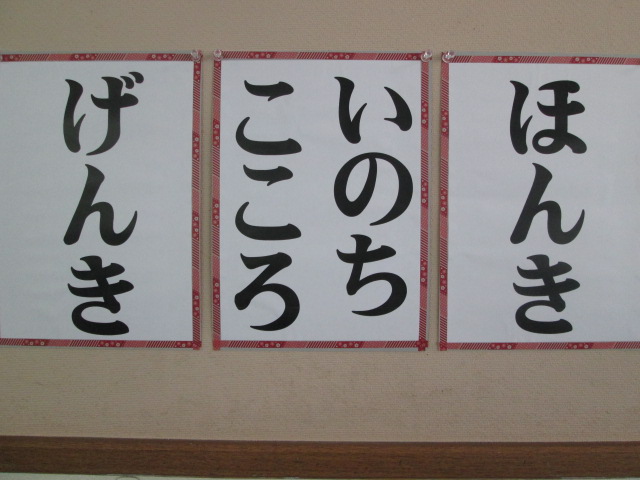 ほんき
いのち
こころ
げんき